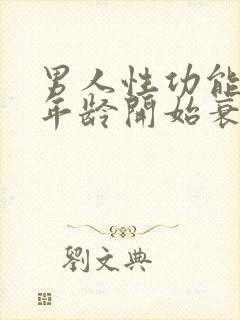 男人性功能
年龄開始衰
劉文典